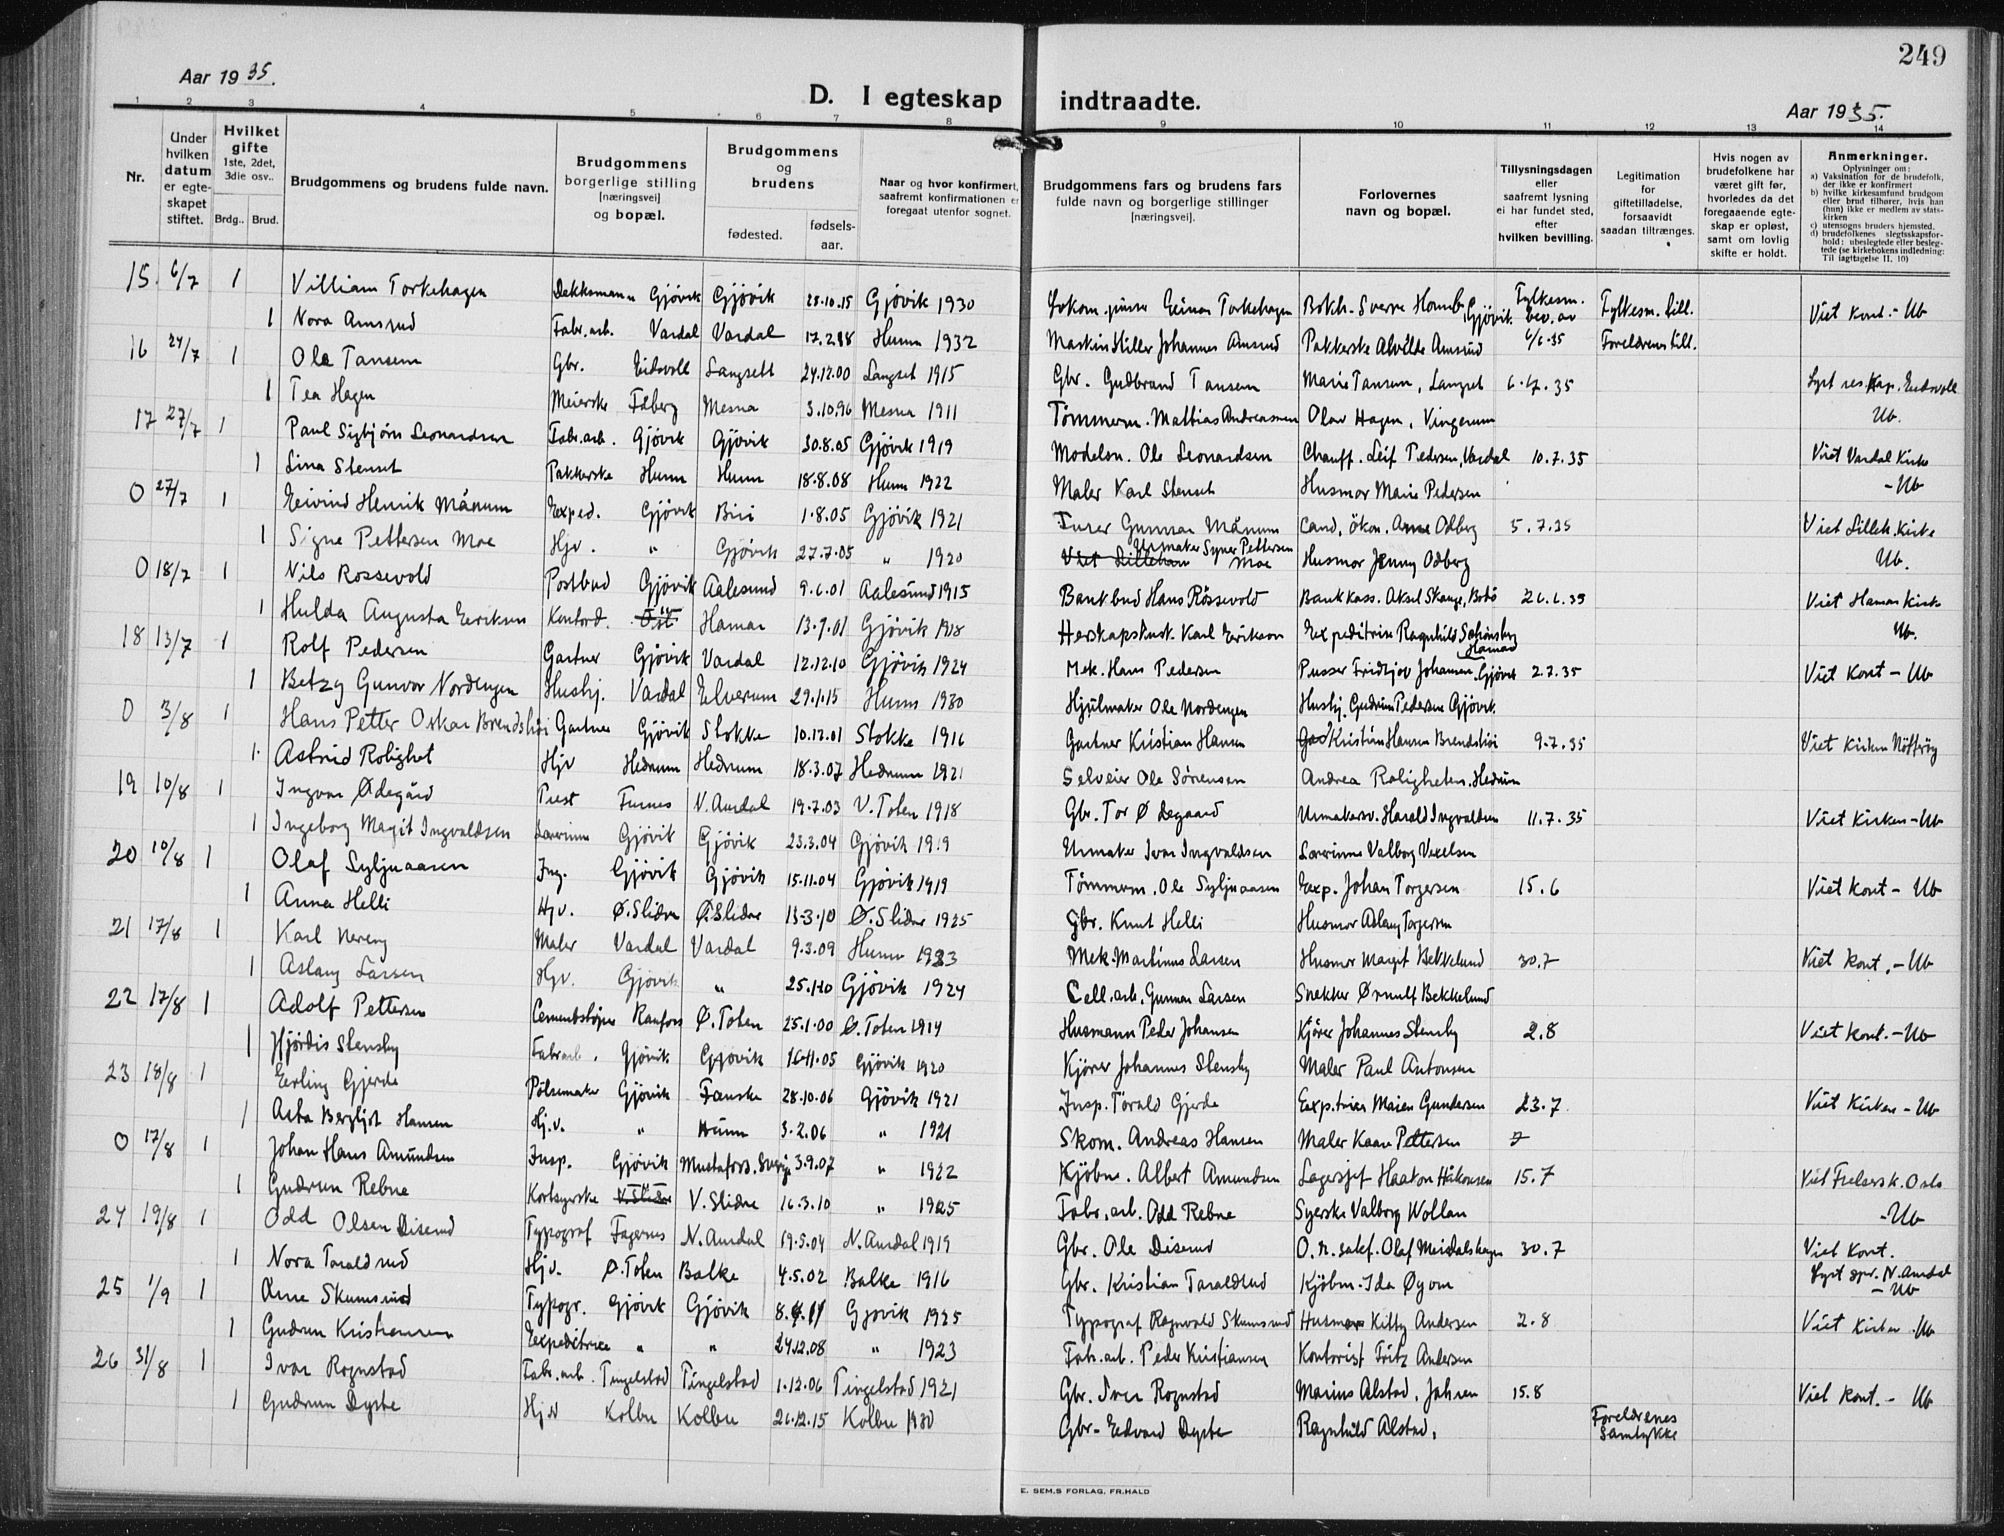 249
Aar 1935.
D. I egteskap indtraadte.
Aar 1935.
1 2 3 4 5 6 7 8 9 10 11 12 13 14
Nr.
Under hvilken datum er egteskapet stiftet.
Hvilket gifte 1ste, 2det, 3die osv..
Brdg.. Brud.
Brudgommens og brudens fulde navn.
Brudgommens borgerlige stilling [næringsvei] og bopæl.
Brudgommens og brudens
fødested. fødselsaar.
Naar og hvor konfirmert, saafremt konfirmationen er foregaat utenfor sognet.
Brudgommens fars og brudens fars fulde navn og borgerlige stillinger [næringsvei].
Forlovernes navn og bopæl.
Tillysningsdagen eller saafremt lysning ei har fundet sted, efter hvilken bevilling.
Legitimation for giftetilladelse, forsaavidt saadan tiltrænges.
Hvis nogen av brudefolkene har været gift før, hvorledes da det foregaaende egteskap er opløst, samt om lovlig skifte er holdt.
Anmerkninger.
Oplysninger om:
a) Vaksination for de brudefolk, der ikke er konfirmert
b) hvilke kirkesamfund brudgom eller brud tilhører, hvis han (hun) ikke er medlem av statskirken
c) utensogns bruders hjemsted.
d) brudefolkenes slegtsskapsforhold: ubeslegtede eller beslegtede (se kirkebokens indledning: Til iagttagelse II. 10)
15. 6/7 1 Villiam Torkehagen Dekksmann Gjøvik Gjøvik 28.10.15 Gjøvik 1930 Einar Torkehagen Fylkesm. bev. av Fylkesm. till. Viet kont. - Ub
1 Nora Amsrud Fabr.arb. Vardal Vardal Hunn 1932 Johannes Amsrud Pakkerske Alvilde Amsrud 6/6-35 Foreldrenes till.
16 27/7 1 Ole Tansem Gbr. Eidsvoll Langsett 24.12.00 Langset 1915 Gbr. Gudbrand Tansem Marie Tansem, Langset 35 Lyst res.kap. Eidsvoll
1 Tea Hagen Meierske Faberg Mesna 3.10.96 Mesna 1911 Tømmerm. Mathias Andreassen Olav Hagen, Vingerum Ub.
17 27/7 1 Paul Sigbjørn Leonardsen Fabr.arb. Gjøvik Gjøvik 30.8.05 Gjøvik 1919 Modelsn. Ole Leonardsen Chauff. Leif Pedersen, Vardal 10.7.35 Viet Vardal Kirke
1 Lina Stenset Pakkerske Hunn Hunn 18.8.08 Hunn 1922 Maler Karl Stenset Husmor Marie Pedersen - Ub
0 27/7 1 Eivind Henrik Månum Exped. Gjøvik Biri 1.8.05 Gjøvik 1921 Gunnar Månum Cand. økon. Arne Odberg 5.7.35 Viet Lilleh. Kirke
1 Signe Pettersen Moe Hjv. " Gjøvik 27.7.05 " 1920 Urmaker Syver Pettersen Moe Husmor Jenny Odberg Ub.
0 18/7 1 Nils Rossevold Postbud Gjøvik Aalesund 9.6.01 Aalesund 1915 Bankbud Hans Røssevold Bankkass. Aksel Skange, Bodø 26.6.35 Viet Hamar Kirke
1 Hulda Augusta Eriksen Kontord. Hamar 13.9.01 Gjøvik 1918 Karl Erikson Expeditrise Ragnhild Hamar Ub.
18 13/7 1 Rolf Pedersen Gartner Gjøvik Vardal 12.12.10 Gjøvik 1924 Mek. Hans Pedersen Pusser Fridtjov Johansen Gjøvik 2.7.35 Viet kont - Ub
1 Betzy Gunvor Nordengen Hushj. Vardal Elverum 29.1.15 Hunn 1930 Hjulmaker Ole Nordengen Hushj. Gudrun Pedersen Gjøvik.
0 3/8 1 Hans Petter Oskar Brendshøi Gartner Gjøvik Stokke 10.12.01 Stokke 1916 Gartner Kristian Hansen Kristian Hansen Brendshøi 9.7.35 Viet kirken Nøtterøy
1 Astrid Rolighet Hjv Hedrum Hedrum 18.3.07 Hedrum 1921 Selveier Ole Sørensen Andrea Roligheten. Hedrum
19 10/8 1 Ingvar Ødegård Prest Furnes N. Aurdal 19.7.03 V. Toten 1918 Gbr. Tor Ødegaard Urmakersv. Harald Ingvaldsen 11.7.35 Viet kirken - Ub
1 Ingeborg Magit Ingvaldsen Lærerinne Gjøvik Gjøvik 23.3.04 Gjøvik 1919 Urmaker Ivar Ingvaldsen Lærerinne Valborg Vexelsen
20 10/8 1 Olaf Syljuaasen Ing. Gjøvik Gjøvik 15.11.04 Gjøvik 1919 Tømmerm. Ole Syljuaasen Exp. Johan Torgersen 15.6 Viet kont - Ub
1 Anna Helli Hjv. Ø. Slidre Ø. Slidre 13-3-10 Ø. Slidre 1925 Gbr. Knut Helli Husmor Aslaug Torgersen
21 17/8 1 Karl Nereng Maler Vardal Vardal 9.3.09 Hunn 1923 Mek. Martinus Larsen Husmor Margit Bekkelund 30.7 Viet kont. - Ub
1 Aslaug Larsen Hjv. Gjøvik " 25.1.10 Gjøvik 1924 Cell.arb. Gunnar Larsen Snekker Ørnulf Bekkelund
22 17/8 1 Adolf Pettersen Cementstøper Raufoss Ø. Toten 25.1.00 Ø. Toten 1914 Husmann Peder Johansen Kjører Johannes Stensby 2.8 Viet kont. - Ub
1 Hjørdis Stensby Fabrarb. Gjøvik Gjøvik 16.11.05 Gjøvik 1920 Kjører Johannes Stensby Maler Paul Antonsen
23 18/8 1 Erling Gjerde Pølsemaker Gjøvik Fauske 28.10.06 Gjøvik 1921 Insp. Torald Gjerde Exp.trise Maien Gundersen 23.7 Viet Kirken - Ub
1 Asta Bergljot Hansen Hj.v. " Hunn 3.2.06 " 1921 Skom. Andreas Hansen Maler Kaare Pettersen
0 17/8 1 Johan Hans Amundsen Insp. Gjøvik Mustafors. Sverige 3.9.07 " 1922 Kjøbm. Albert Amundsen Lagersjef Haakon Håkonsen 15.7 Viet Frelsersk. Oslo
1 Gudrun Rebne Korlsyerske V. Slidre V. Slidre 16.3.10 " 1925 Fabr.arb. Odd Rebne Syerske Valborg Wollan - Ub
24 19/8 1 Odd Olsen Diserud Typograf Fagernes N. Aurdal 19.5.04 N. Aurdal 1919 Gbr. Ole Diserud O.r.sakf. Olaf Meisdalshagen 30.7 Viet kont.
1 Nora Taraldrud Hjv. Ø. Toten Balke 4.5.02 Balke 1916 Gbr. Kristian Taraldsud Kjøbm. Ida Øyom Lyst spr. N. Aurdal - Ub
25 1/9 1 Arne Skumsrud Typogr. Gjøvik Gjøvik Gjøvik 1925 Typograf Ragnvald Skumsrud Husmor Kitty Andersen 2.8 Viet kirken Ub
1 Gudrun Kristiansen Expeditrice " " 24.12.08 " 1923 Fab.arb. Peder Kristiansen Kontorist Fritz Andersen
26 31/8 1 Ivar Rognstad Fabr.arb. Tingelstad Tingelstad 1.12.06 Tingelstad 1921 Gbr. Iver Rognstad Marius Alstad, Jahren 15.8 Viet kont. - Ub
1 Gudrun Dyste Hjv Kolbu Kolbu 26.12.15 Kolbu 1930 Gbr - Edvard Dyste Ragnhild Alstad, Foreldrenes samtykke
E. SEM.S FORLAG, FR.HALD